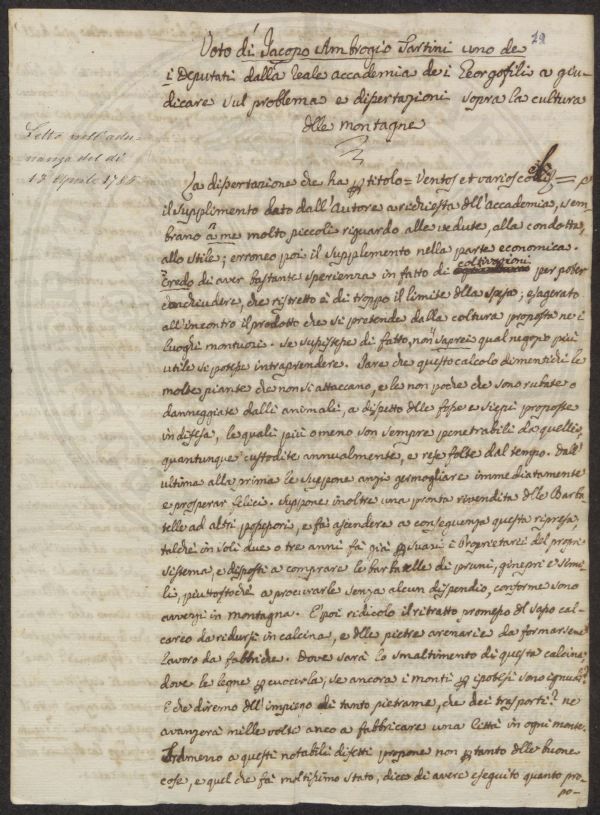 29
Voto di Jacopo Ambrogio Tartini uno de
i Deputati dalla reale accademia dei Georgofili a giu-
dicare sul problema e dissertazioni sopra la cultura
dlle montagne
Letto nell'adu-
nanza del di
13 Aprile 1785
La dissertazione che ha p titolo = Ventos et varios =
il supplimento dato dall'Autore a richiesta dll'accademia, sem-
brano a me molto piccoli riguardo alle vedute, alla condotta,
allo stile; erroneo poi il supplemento nella parte economica.
Credo di aver bastante sperienza in fatto di coltivazioni per poter
conchiudere, che ristretto è di troppo il limite dlla spesa; esagerato
all'incontro il prodotto che si pretende dalla coltura proposta ne i
luoghi montuosi. Se sussistesse di fatto, non saprei qual negozio più
utile si potesse intraprendere. Pare che questo calcolo dimentichi le
molte piante che non si attaccano, e le non poche che sono rubate o
danneggiate dalli animali, a dispetto dlle fosse e siepi proposte
in difesa, le quali più o meno son sempre penetrabili da quelli,
quantunque custodite annualmente, e rese folte dal tempo. Dall'
ultima alla prima le suppone anzi germogliare immediatamente
e prosperar felici. Suppone inoltre una pronta rivendita dlle Barba-
telle ad altri possessori, e fa ascendere a conseguenza questa ripresa,
talchè in soli due o tre anni fa già psuasi i Proprietari del proprio
sistema, e disposti a comprare le barbatelle di pruni, ginepri e simi-
li, piuttostochè a procurarle senza alcun dispendio, conforme sono
avvezzi in montagna. E poi ridicolo il ritratto promesso dl sasso cal-
careo da ridursi in calcina, e dlle pietre arenarie da formarsene
lavoro da fabbriche. Dove sarà lo smaltimento di questa calcina,
dove le legne p cuocerla, se ancora i monti p ipotesi sono ignudi?
E che diremo dll'impiego di tanto pietrame, che dei trasporti? ne
avanzerà mille volte anco a fabbricare una Città in ogni monte.
Frammezzo a questi notabili difetti propone non ptanto dlle buone
cose, e quel che fa moltissimo stato, dice di avere eseguito quanto pro-
po-